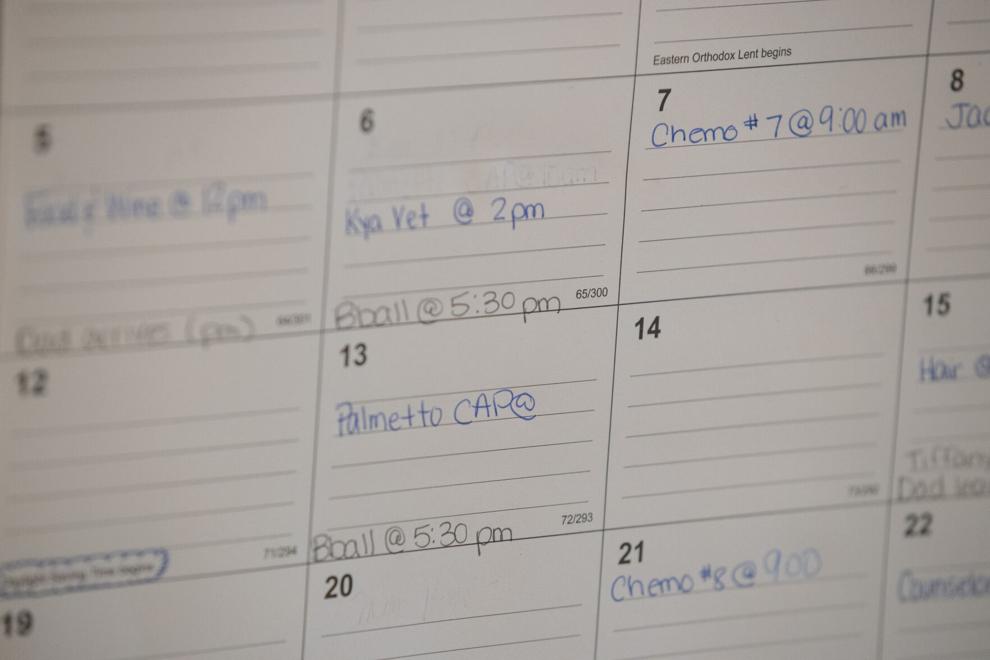 Eastern Orthodox Lent begins
5
@ 12pm
arrives (pm)
6
Kya Vet @ 2pm
Bball @ 5:30 pm
65/300
7
Chemo #7 @ 9:00 am
66/299
8
Jac
12
71/294
Daylight Saving Time begins
13
Palmetto CAP@
Bball @ 5:30 pm
72/293
14
15
Hair @
Tiffany
Dad lea
19
20
21
Chemo #8 @ 900
22
Counselo